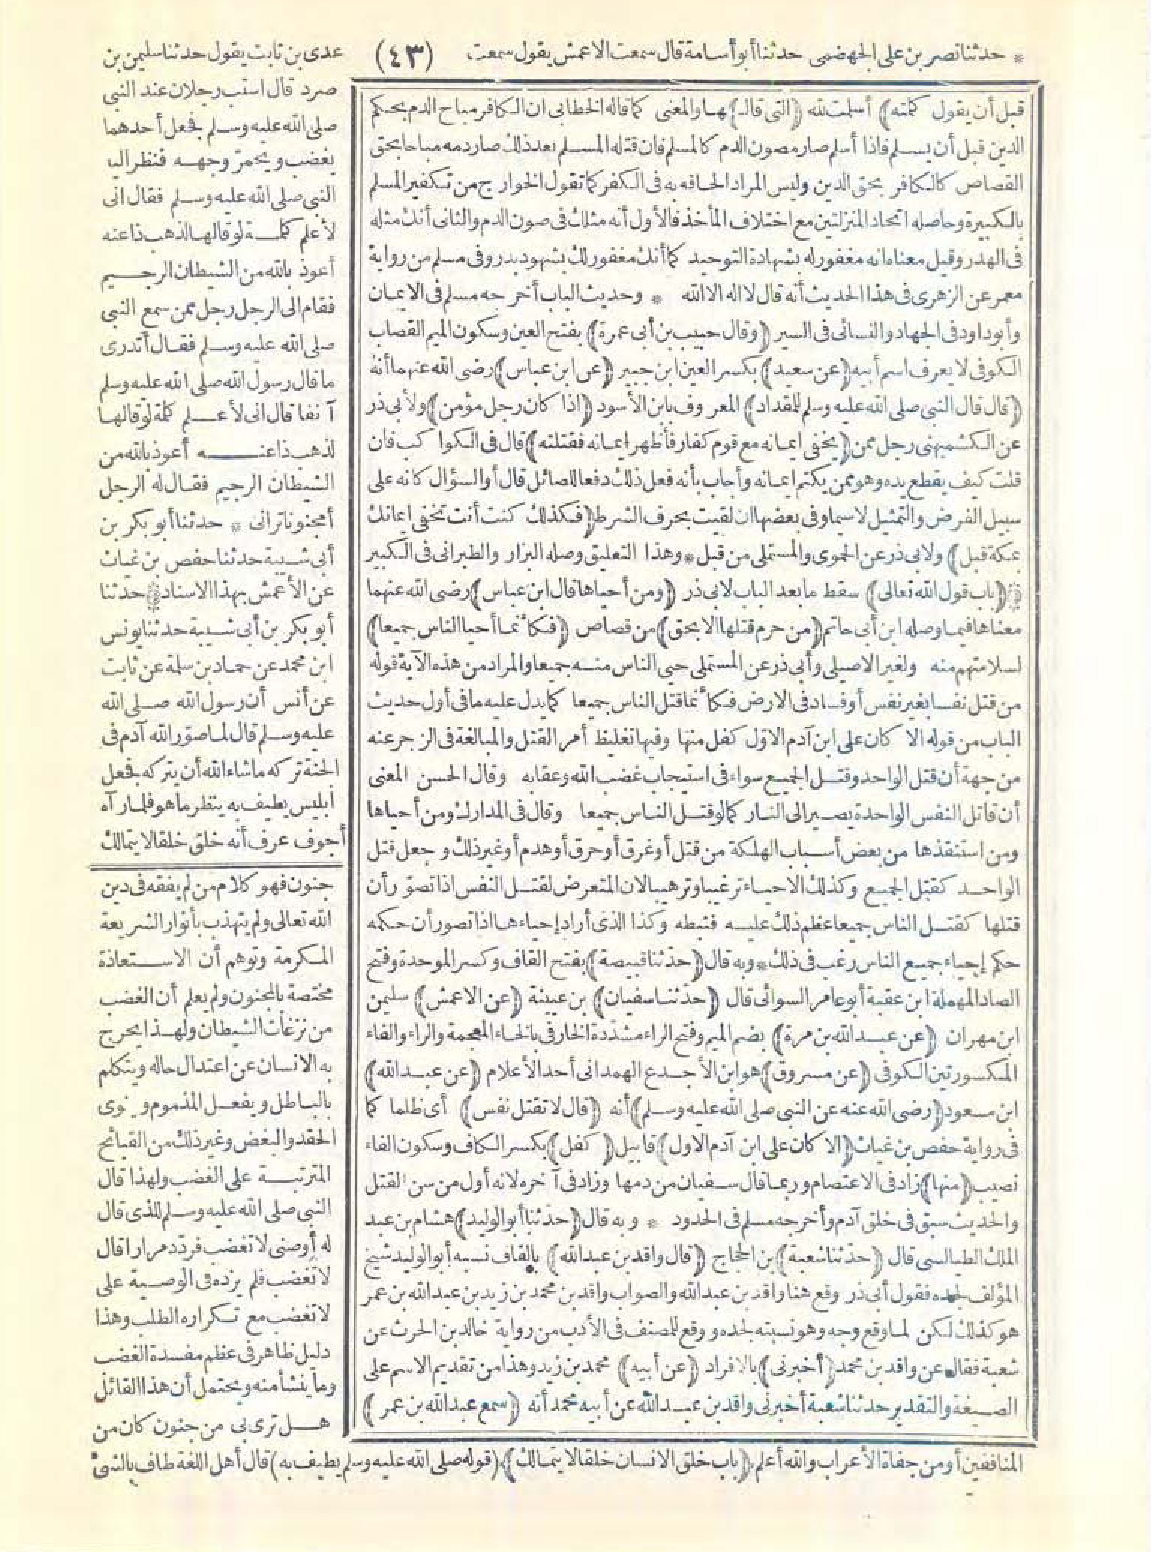 * حدثنا نصر بن على الجهضمى حدثنا أبو أسامة قال سمعت الاعمش يقول سمعت
(٤٣)
عدى بن ثابت يقول حدثنا سليمن بن
صرد قال استب رجلان عند النبى
صلى الله عليه وسلم فجعل أحدهما
يغضب ويحمر وجهه فنظر اليه
النبى صلى الله عليه وسلم فقال انى
لأعلم كلمة لو قالها لذهب ذا عنه
أعوذ بالله من الشيطان الرجيم
فقام الى الرجل رجل ممن سمع النبى
صلى الله عليه وسلم فقال أتدرى
ما قال رسول الله صلى الله عليه وسلم
آنفا قال انى لأعلم كلمة لو قالها
لذهب ذا عنه أعوذ بالله من
الشيطان الرجيم فقال له الرجل
أمجنونا ترانى * حدثنا أبو بكر بن
أبى شيبة حدثنا حفص بن غياث
عن الأعمش بهذا الاسناد حدثنا
أبو بكر بن أبى شيبة حدثنا يونس
ابن محمد عن حماد بن سلمة عن ثابت
عن أنس أن رسول الله صلى الله
عليه وسلم قال لما صور الله آدم فى
الجنة تركه ما شاء الله أن يتركه فجعل
ابليس يطيف به ينظر ما هو فلما رآه
أجوف عرف أنه خلق خلقا لا يتمالك
قبل أن يقول كلمته) أسلمت لله (التى قال) بها والمعنى كما قاله الخطابى ان الكافر مباح الدم بحكم
الدين قبل أن يسلم فاذا أسلم صار مصون الدم كالمسلم فان قتله المسلم بعد ذلك صار دمه مباحا بحق
القصاص كالكافر بحق الدين وليس المراد الحاقه به فى الكفر كما تقول الخوارج من تكفير المسلم
بالكبيرة وحاصله اتحاد المنزلتين مع اختلاف المأخذ فالأول أنه مثلك فى صون الدم والثانى أنك مثله
فى الهدر وقيل معناه انه مغفور له بشهادة التوحيد كما أنك مغفور لك بشهود بدر وفى مسلم من رواية
معمر عن الزهرى فى هذا الحديث أنه قال لا اله الا الله * وحديث الباب أخرجه مسلم فى الايمان
وأبو داود فى الجهاد والنسائى فى السير (وقال حبيب بن أبى عمرة) بفتح العين وسكون الميم القصاب
الكوفى لا يعرف اسم أبيه (عن سعيد) بكسر العين ابن جبير (عن ابن عباس) رضى الله عنهما أنه
(قال قال النبى صلى الله عليه وسلم للمقداد) المعروف بابن الأسود (اذا كان رجل مؤمن) ولأبى ذر
عن الكشميهنى رجل ممن (يخفى ايمانه مع قوم كفار فأظهر ايمانه فقتلته) قال فى الكواكب فان
قلت كيف يقطع يده وهو ممن يكتم ايمانه وأجاب بأنه فعل ذلك دفعا للصائل قال أو السؤال كانه على
سبيل الفرض والتمثيل لا سيما وفى بعضها ان لقيت بحرف الشرط (فكذلك كنت أنت تخفى ايمانك
بمكة قبل) ولابى ذر عن الحموى والمستملى من قبل * وهذا التعليق وصله البزار والطبرانى فى الكبير
(باب قول الله تعالى) سقط ما بعد الباب لابى ذر (ومن أحياها قال ابن عباس) رضى الله عنهما
معناها فيما وصله ابن أبى حاتم (من حرم قتلها الا بحق) من قصاص (فكأنما أحيا الناس جميعا)
لسلامتهم منه ولغير الاصيلى وأبى ذر عن المستملى حيى الناس منه جميعا والمراد من هذه الآية قوله
من قتل نفسا بغير نفس أو فساد فى الارض فكأنما قتل الناس جميعا كما يدل عليه ما فى أول حديث
الباب من قوله الا كان على ابن آدم الاول كفل منها وفيها تغليظ أمر القتل والمبالغة فى الزجر عنه
من جهة أن قتل الواحد وقتل الجميع سواء فى استيجاب غضب الله وعقابه وقال الحسن المعنى
أن قاتل النفس الواحدة يصير الى النار كما لو قتل الناس جميعا وقال فى المدارك ومن أحياها
ومن استنقذها من بعض أسباب الهلكة من قتل أو غرق أو حرق أو هدم أو غير ذلك وجعل قتل
الواحد كقتل الجميع وكذلك الاحياء ترغيبا وترهيبا لان المتعرض لقتل النفس اذا تصور أن
قتلها كقتل الناس جميعا عظم ذلك عليه فثبطه وكذا الذى أراد إحياءها اذا تصور أن حكمه
حكم إحياء جميع الناس رغب فى ذلك * وبه قال (حدثنا قبيصة) بفتح القاف وكسر الموحدة وفتح
الصاد المهملة ابن عقبة أبو عامر السوائى قال (حدثنا سفيان) بن عيينة (عن الاعمش) سليمن
ابن مهران (عن عبد الله بن مرة) بضم الميم وفتح الراء مشددة الخارفى بالخاء المعجمة والراء والفاء
المكسورتين الكوفى (عن مسروق) هو ابن الأجدع الهمدانى أحد الأعلام (عن عبد الله)
ابن مسعود (رضى الله عنه عن النبى صلى الله عليه وسلم) أنه (قال لا تقتل نفس) أى ظلما كما
فى رواية حفص بن غياث (الا كان على ابن آدم الاول) قابيل (كفل) بكسر الكاف وسكون الفاء
نصيب (منها) زاد فى الاعتصام وربما قال سفيان من دمها وزاد فى آخره لانه أول من سن القتل
والحديث سبق فى خلق آدم وأخرجه مسلم فى الحدود * وبه قال (حدثنا أبو الوليد) هشام بن عبد
الملك الطيالسى قال (حدثنا شعبة) بن الحجاج (قال واقد بن عبد الله) بالقاف نسبه أبو الوليد شيخ
المؤلف لجده فقول أبى ذر وقع هنا واقد بن عبد الله والصواب واقد بن محمد بن زيد بن عبد الله بن عمر
هو كذلك لكن لما وقع وجه وهو نسبته لجده ووقع للمصنف فى الأدب من رواية خالد بن الحرث عن
شعبة فقال عن واقد بن محمد (أخبرنى) بالافراد (عن أبيه) محمد بن زيد وهذا من تقديم الاسم على
الصيغة والتقدير حدثنا شعبة أخبرنى واقد بن عبد الله عن أبيه محمد أنه (سمع عبد الله بن عمر)
جنون فهو كلام من لم يفقه فى دين
الله تعالى ولم يتهذب بأنوار الشريعة
المكرمة وتوهم أن الاستعاذة
مختصة بالمجنون ولم يعلم أن الغضب
من نزغات الشيطان ولهذا يخرج
به الانسان عن اعتدال حاله ويتكلم
بالباطل ويفعل المذموم وينوى
الحقد والبغض وغير ذلك من القبائح
المترتبة على الغضب ولهذا قال
النبى صلى الله عليه وسلم للذى قال
له أوصنى لا تغضب فردد مرارا قال
لا تغضب فلم يزده فى الوصية على
لا تغضب مع تكراره الطلب وهذا
دليل ظاهر فى عظم مفسدة الغضب
وما ينشأ منه ويحتمل أن هذا القائل
هل ترى بى من جنون كان من
المنافقين أو من جفاة الأعراب والله أعلم. (باب خلق الانسان خلقا لا يتمالك). (قوله صلى الله عليه وسلم يطيف به) قال أهل اللغة طاف بالشئ